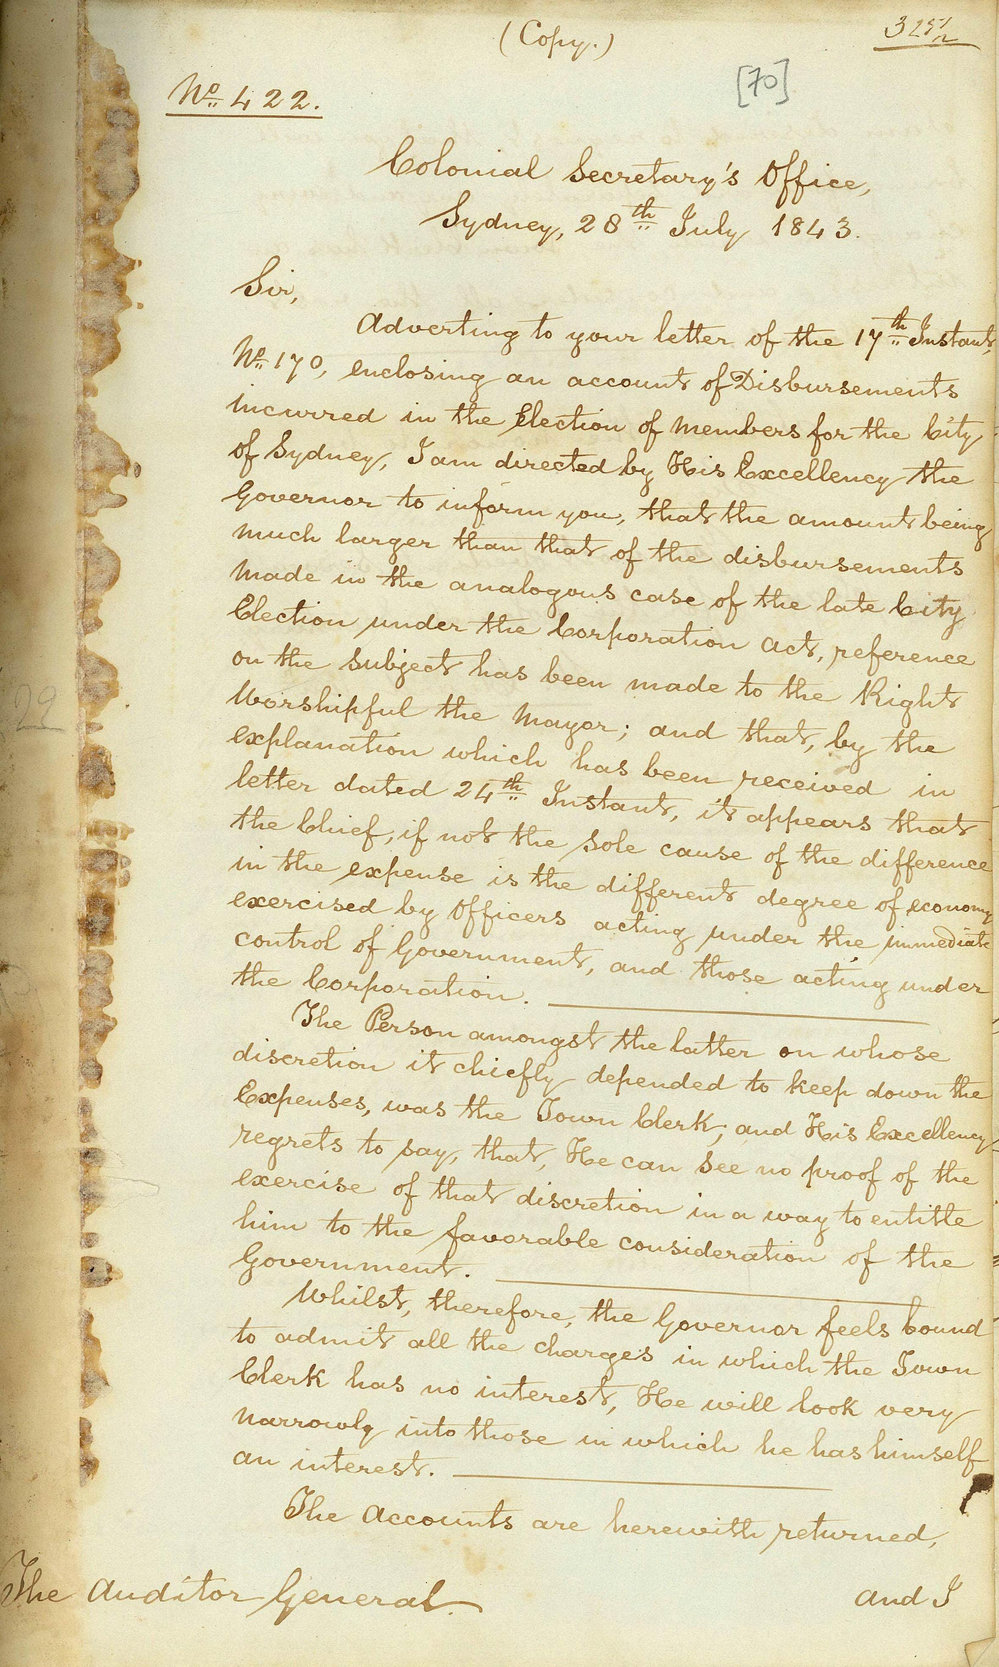 (Copy.)
325/12
[70]
No. 422.
Colonial Secretary's Office,
Sydney, 28th July 1843.
Sir,
Adverting to your letter of the 17th Instant,
No. 170, enclosing an account of Disbursements
incurred in the Election of Members for the City
of Sydney, I am directed by His Excellency the
Governor to inform you, that the amount being
much larger than that of the disbursements
made in the analogous case of the late City
Election under the Corporation Act, reference
on the subject has been made to the Right
Worshipful the Mayor; and that, by the
explanation which has been received in
letter dated 24th Instant, it appears that
the Chief, if not the sole cause of the difference
in the expense is the different degree of economy
exercised by Officers acting under the immediate
control of Government, and those acting under
the Corporation.
The Person amongst the latter on whose
discretion it chiefly depended to keep down the
Expenses, was the Town Clerk; and His Excellency
regrets to say, that, He can see no proof of the
exercise of that discretion in a way to entitle
him to the favorable consideration of the
Government.
Whilst, therefore, the Governor feels bound
to admit all the charges in which the Town
Clerk has no interest, He will look very
narrowly into those in which he has himself
an interest.
The Accounts are herewith returned,
The Auditor General.
and I
29